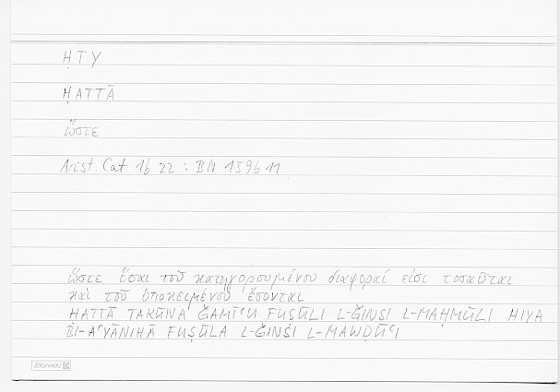 ḤTY
ḤATTĀ
ὥστε
Arist. Cat 1b 22 : BN 159b 11
ὥστε ὅσαι τοῦ κατηγορουμένου διαφοραί εἰσι τοσαῦται
καὶ τοῦ ὑποκειμένου ἔσονται
ḤATTĀ TAKŪNA ǦAMĪʿU FUṢŪLI L-ǦINSI L-MAḤMŪLI HIYA
BI-AʿYĀNIHĀ FUṢŪLA L-ǦINSI L-MAWḌŪʿI